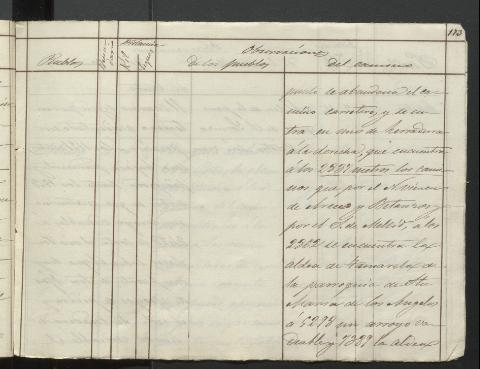 113
Observaciones
Pueblos
De los pueblos
Del camino
punto se abandona el ca-
mino carretero, y se en-
tra en uno de herradura
á la derecha, que encuentra
á los 2537 metros los cami-
nos que por el N. vienen
de y Betanzos y
por el S. de Mellid, á los
2502 se encuentra la
aldea de de
la parroquia de Sta
Maria de los Angeles
á 5293 un arroyo va-
deable y 7339 la aldea